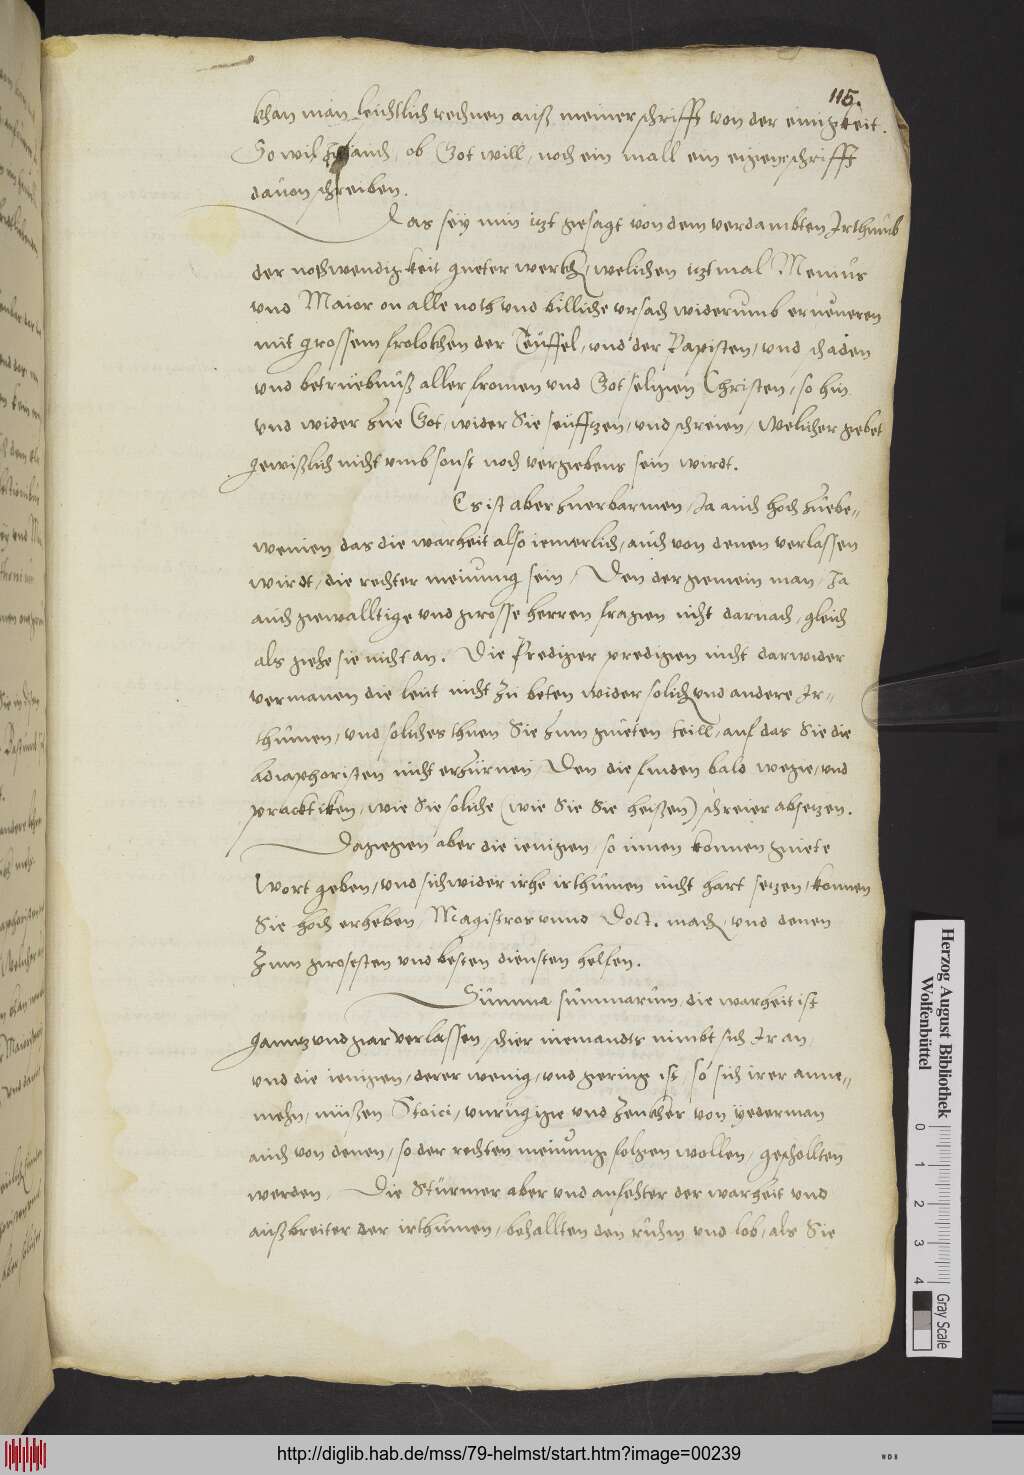 115.
khan man leichtlich rechnen auß meiner schrifft von der einigkeit.
So wil ich auch, ob Got will, noch ein mall ein eigene schrifft
dauon schreiben.
Das sey nun itzt gesagt von dem verdambten Irthumb
der nothwendigkeit gueter werckh, welichen itztmal Menius
vnd Maior on alle noth vnd billiche vrsach widerumb erneueren
mit grossem frolokhen der Teuffel, vnd der Papisten, vnd schaden
vnd betruebnuß aller fromen vnd Gotseligen Christen, so hin
vnd wider zue Got, wider Sie seufftzen, vnd schreien, Welicher gebet
gewißlich nicht vmb sonst noch vergebens sein wirdt.
Es ist aber zuerbarmen, Ja auch hoch zuebe-
weinen das die warheit also iemerlich, auch von denen verlassen
wirdt, die rechter meinung sein, Den der gemein man, Ja
auch gewalltige vnd grosse herren fragen nicht darnach, gleich
als gehe sie nicht an. Die Prediger predigen nicht darwider
vermanen die leut nicht zu beten wider solich vnd andere Ir-
thumen, vnd soliches thuen Sie zum gueten teill, auf das Sie die
Adiaphoristen nicht erzürnen, Den die finden bald wege, vnd
practiken, wie Sie soliche (wie Sie Sie heißen) schreier absetzen.
Dagegen aber die ienigen, so innen konnen guete
Wort geben, vnd sich wider irhe irthumen nicht hart setzen, konnen
Sie hoch erheben, Magistros vnnd Doct. mach, vnd denen
zum grosesten vnd besten diensten helfen.
Summa summarum, die warheit ist
gantz vnd gar verlassen, schier niemandts nimbt sich Ir an,
vnd die ienigen, derer wenig, vnd gering ist, so sich irer anne-
mehn, müssen Stoici, vnrügige vnd zenckher von yederman
auch von denen, so der rechten meinung folgen wollen, geschollten
werden, Die Stürmer aber vnd anfechter der warheit vnd
außbreiter der irthumen, behallten den ruhm vnd lob, als Sie
Herzog August Bibliothek
Wolfenbüttel
0 1 2 3 4
Gray Scale
http://diglib.hab.de/mss/79-helmst/start.htm?image=00239
WDB